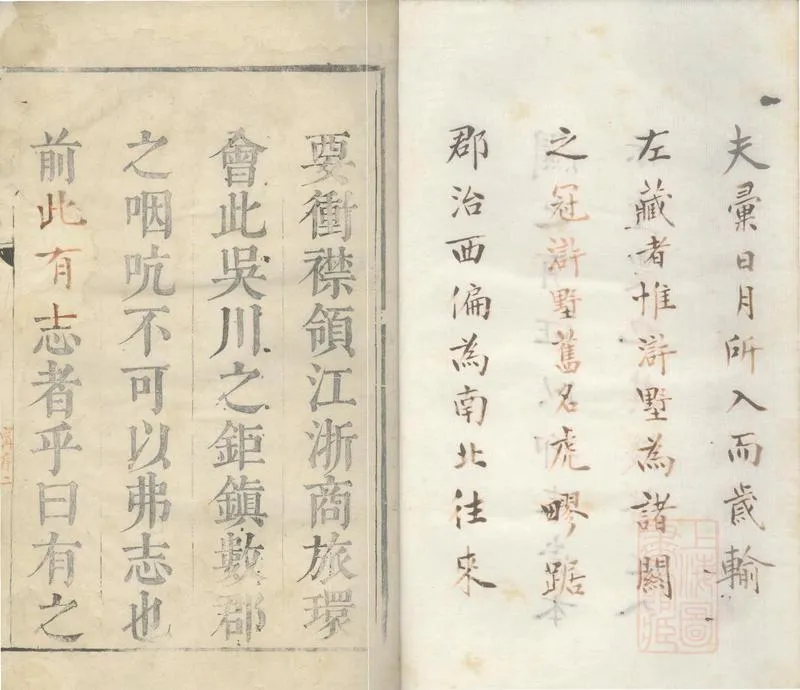 夫彚日月所入而歲輸
左藏者惟滸墅為諸關
之冠滸墅舊名虎疁踞
郡治西偏為南北往來
要衝襟領江浙商旅環
會此吳川之鉅鎮數郡
之咽吭不可以弗志也
前此有志者乎曰有之